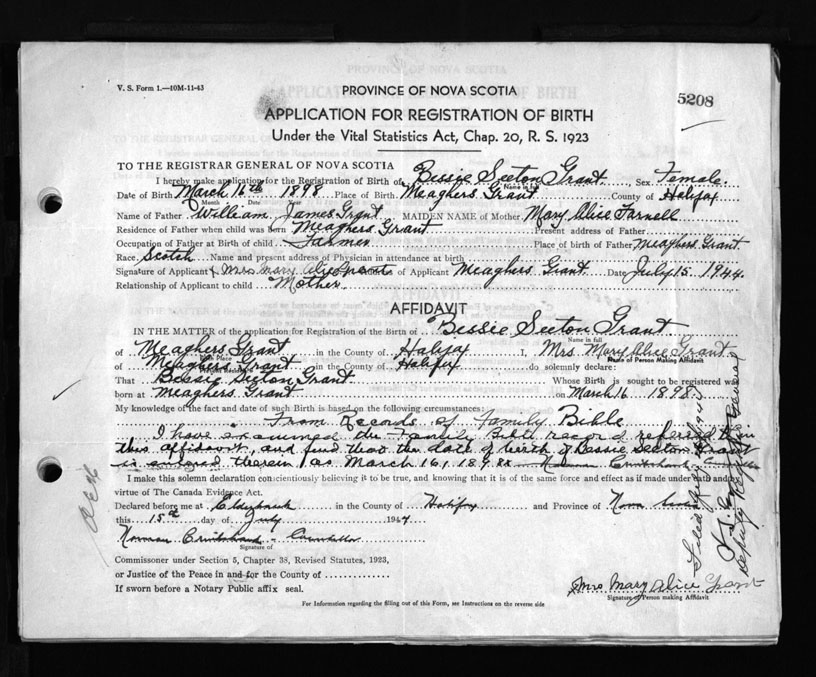 V. S. Form 1.—10M-11-43
PROVINCE OF NOVA SCOTIA
5208
APPLICATION FOR REGISTRATION OF BIRTH
Under the Vital Statistics Act, Chap. 20, R. S. 1923
TO THE REGISTRAR GENERAL OF NOVA SCOTIA
I hereby make application for the Registration of Birth of Bessie Seeton Grant, Sex Female
Name in full
Date of Birth March 16th 1898 Place of Birth Meaghers Grant County of Halifax
Month Date Year
Name of Father William James Grant MAIDEN NAME of Mother Mary Alice Farnell
Residence of Father when child was born Meaghers Grant Present address of Father
Occupation of Father at Birth of child Farmer Place of Birth of Father Meaghers Grant
Race Scotch Name and present address of Physician in attendance at birth
Signature of Applicant Mrs Mary Alice Grant of Applicant Meaghers Grant Date July 15 1944
Relationship of Applicant to child Mother
AFFIDAVIT
IN THE MATTER of the application for Registration of the Birth of Bessie Seeton Grant
Name in full
of Meaghers Grant in the County of Halifax I, Mrs. Mary Alice Grant
Birth Place Name of Person Making Affidavit
of Meaghers Grant in the County of Halifax do solemnly declare:
That Bessie Seeton Grant Whose Birth is sought to be registered was
born at Meaghers Grant on March 16 1898
My knowledge of the fact and date of such Birth is based on the following circumstances:
From Records of Family Bible
I have examined the Family Bible record referred to in
this affidavit, and find that the date of birth of Bessie Seeton Grant
is entered therein as March 16, 1898
I make this solemn declaration conscientiously believing it to be true, and knowing that it is of the same force and effect as if made under oath and by
virtue of The Canada Evidence Act.
Declared before me at Elderbank in the County of Halifax and Province of Nova Scotia
this 15th day of July 1944
Norman Councillor
Signature of
Commissioner under Section 5, Chapter 38, Revised Statutes, 1923,
or Justice of the Peace in and for the County of
If sworn before a Notary Public affix seal.
Mrs Mary Alice Grant
Signature of Person making Affidavit
For Information regarding the filling out of this Form, see Instructions on the reverse side
Deputy Registrar General